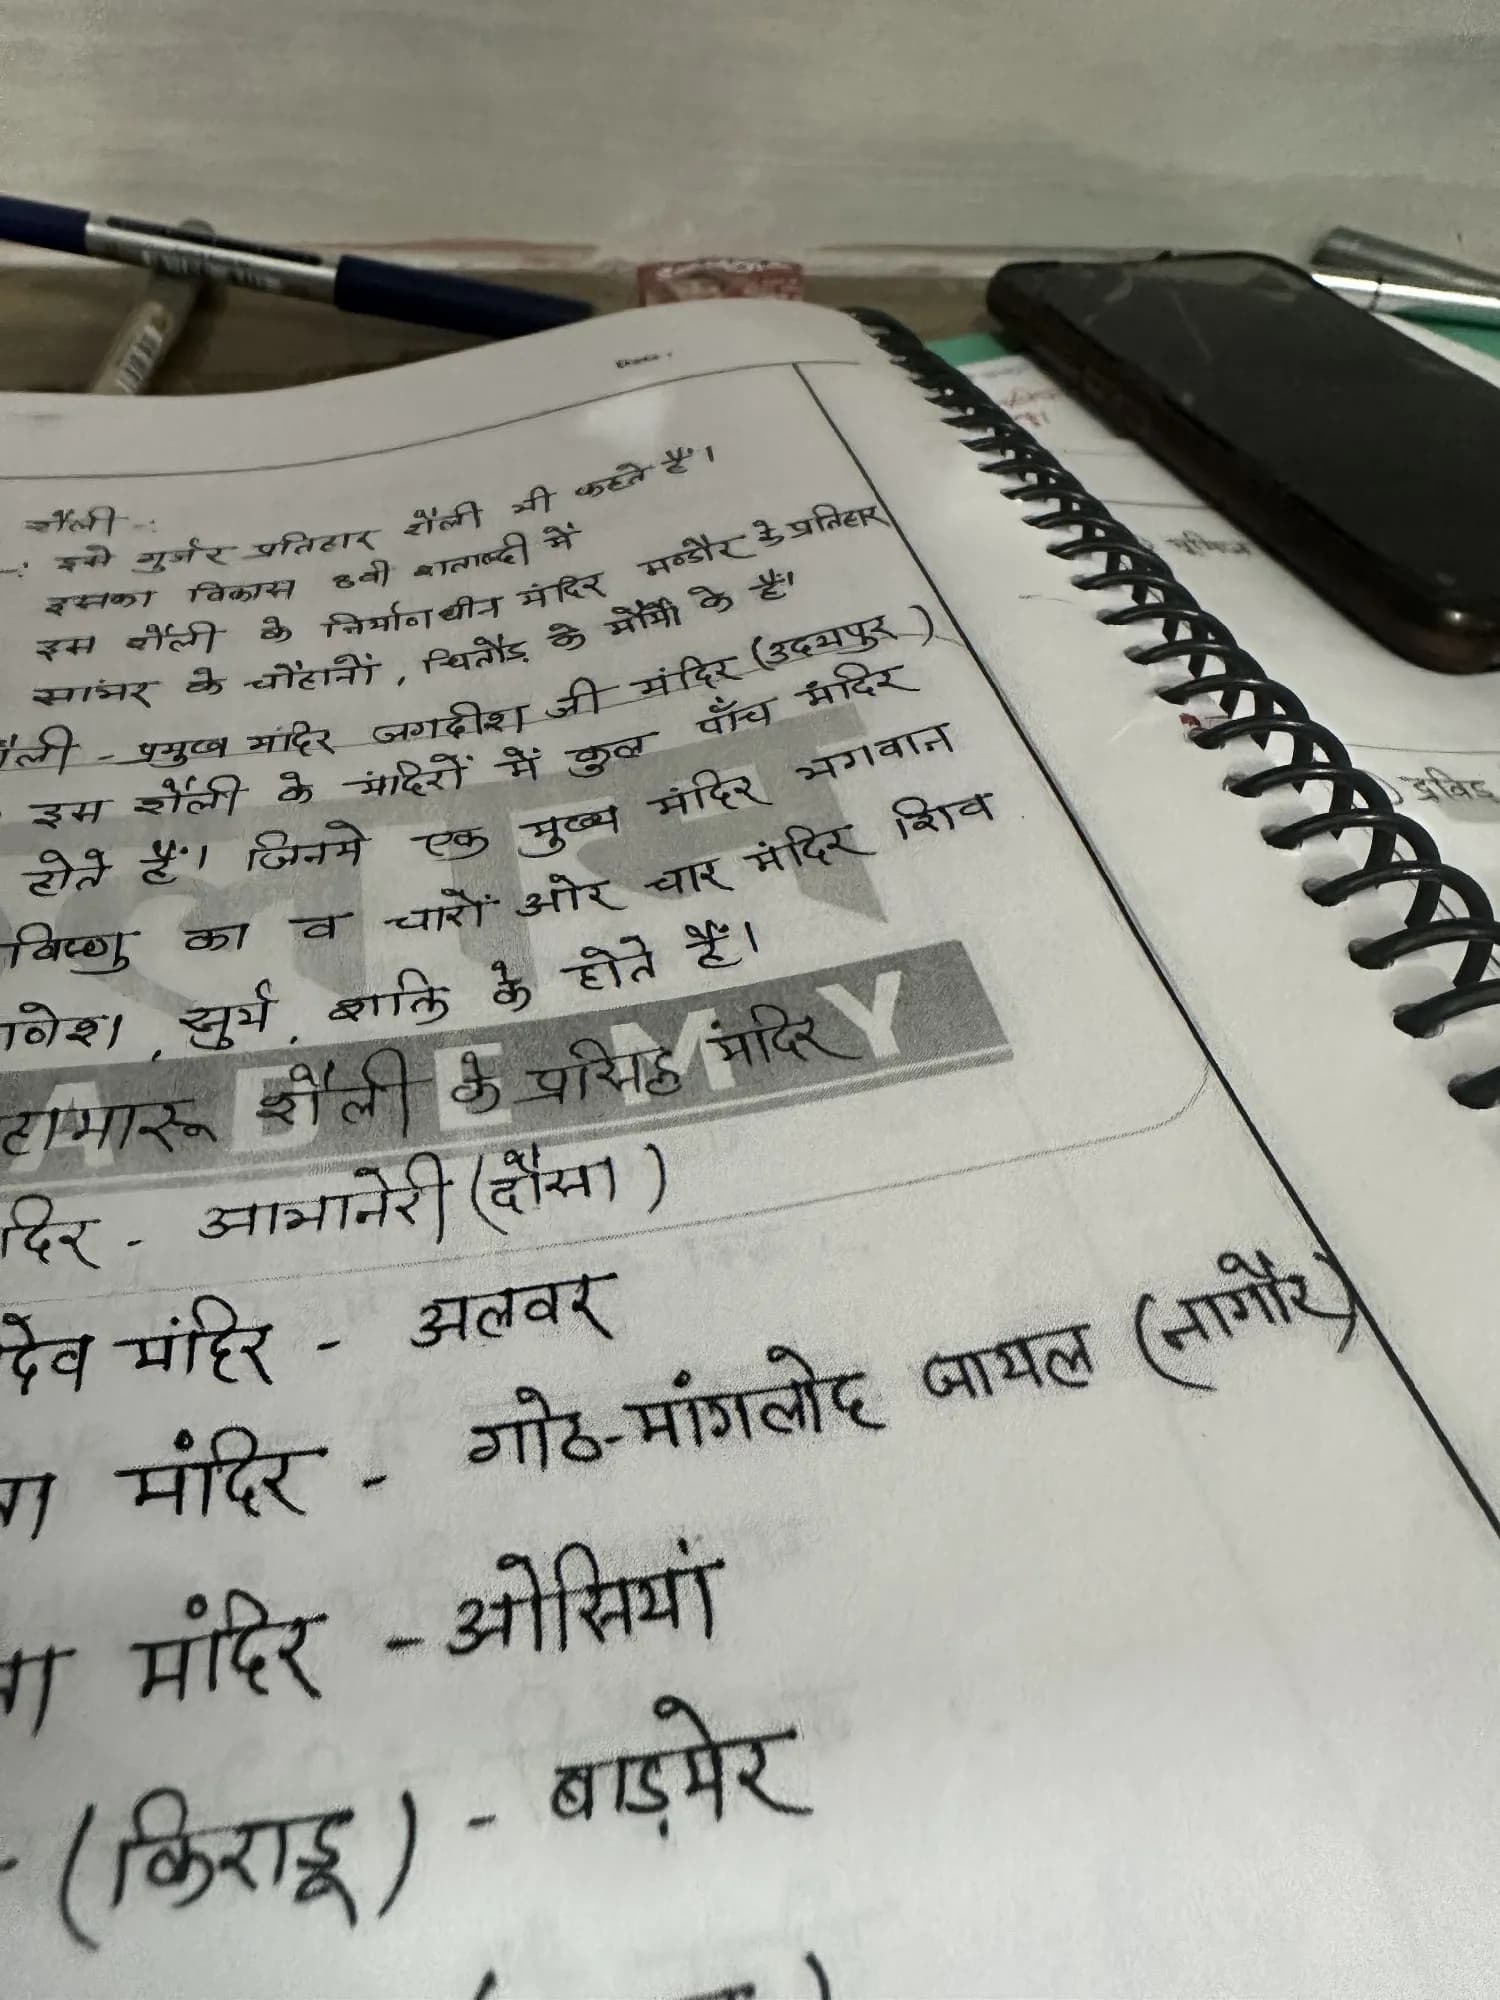 शैली -:
-: इसे गुर्जर प्रतिहार शैली भी कहते हैं।
इसका विकास 8वी शताब्दी में
इस शैली के निर्माणाधीन मंदिर मण्डौर के प्रतिहार
सांभर के चौहानों, चित्तौड़ के मौर्यो के हैं।
ली - प्रमुख मंदिर जगदीश जी मंदिर (उदयपुर)
इस शैली के मंदिरों में कुल पाँच मंदिर
होते हैं। जिनमे एक मुख्य मंदिर भगवान
विष्णु का व चारों ओर चार मंदिर शिव
णेश, सुर्य, शक्ति के होते हैं।
हामारू शैली के प्रसिद्ध मंदिर
दिर - आभानेरी (दौसा)
देव मंदिर - अलवर
मंदिर - गोठ-मांगलोद जायल (नागौर)
मंदिर - ओसियां
- (किराडू) - बाड़मेर
ADEMY
द्रविड़